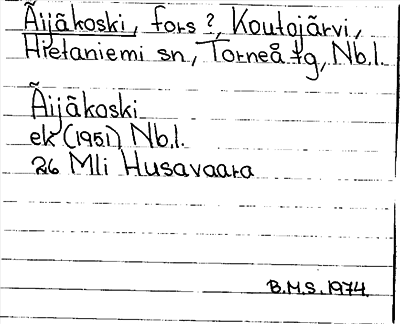 Äijäkoski, fors?, Koutojärvi,
Hietaniemi sn, Torneå tg, Nb.l.
Äijäkoski
ek (1951) Nb.l.
26 Mli Husavaara
B.M.S. 1974